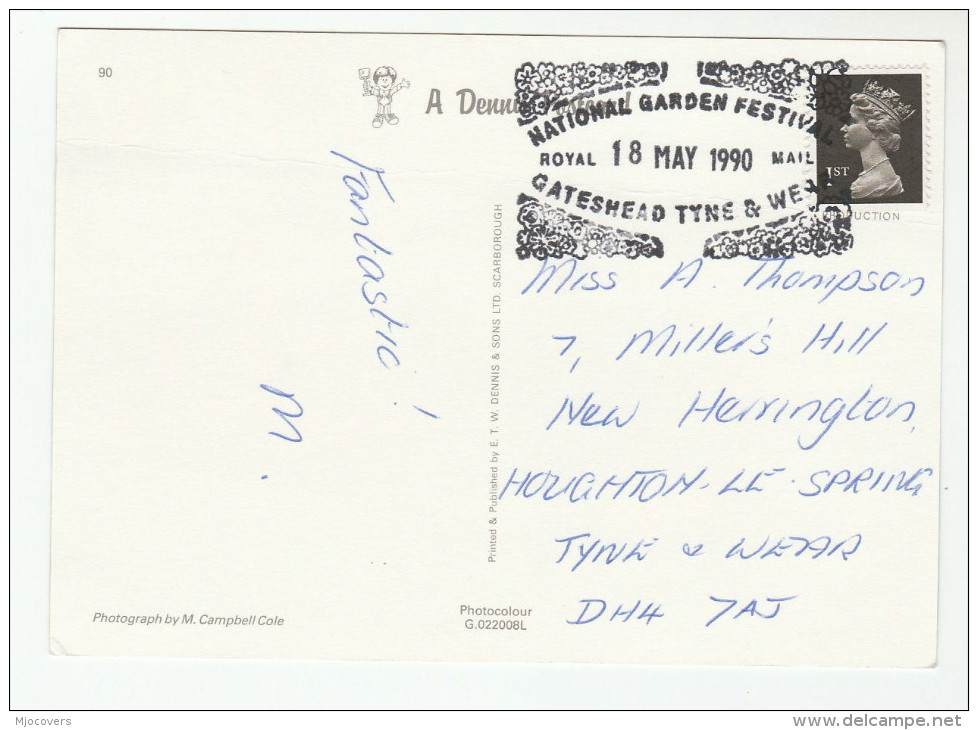 90
A Dennis Postcard
NATIONAL GARDEN FESTIVAL
ROYAL 18 MAY 1990 MAIL
GATESHEAD TYNE & WEAR
1ST
Fantastic!
M.
Printed & Published by E. T. W. DENNIS & SONS LTD. SCARBOROUGH
Miss A. Thompson
7, Miller's Hill
New Herrington,
HOUGHTON-LE-SPRING
TYNE & WEAR
DH4 7AJ
Photograph by M. Campbell Cole
Photocolour
G.022008L
Mjocovers
www.delcampe.net